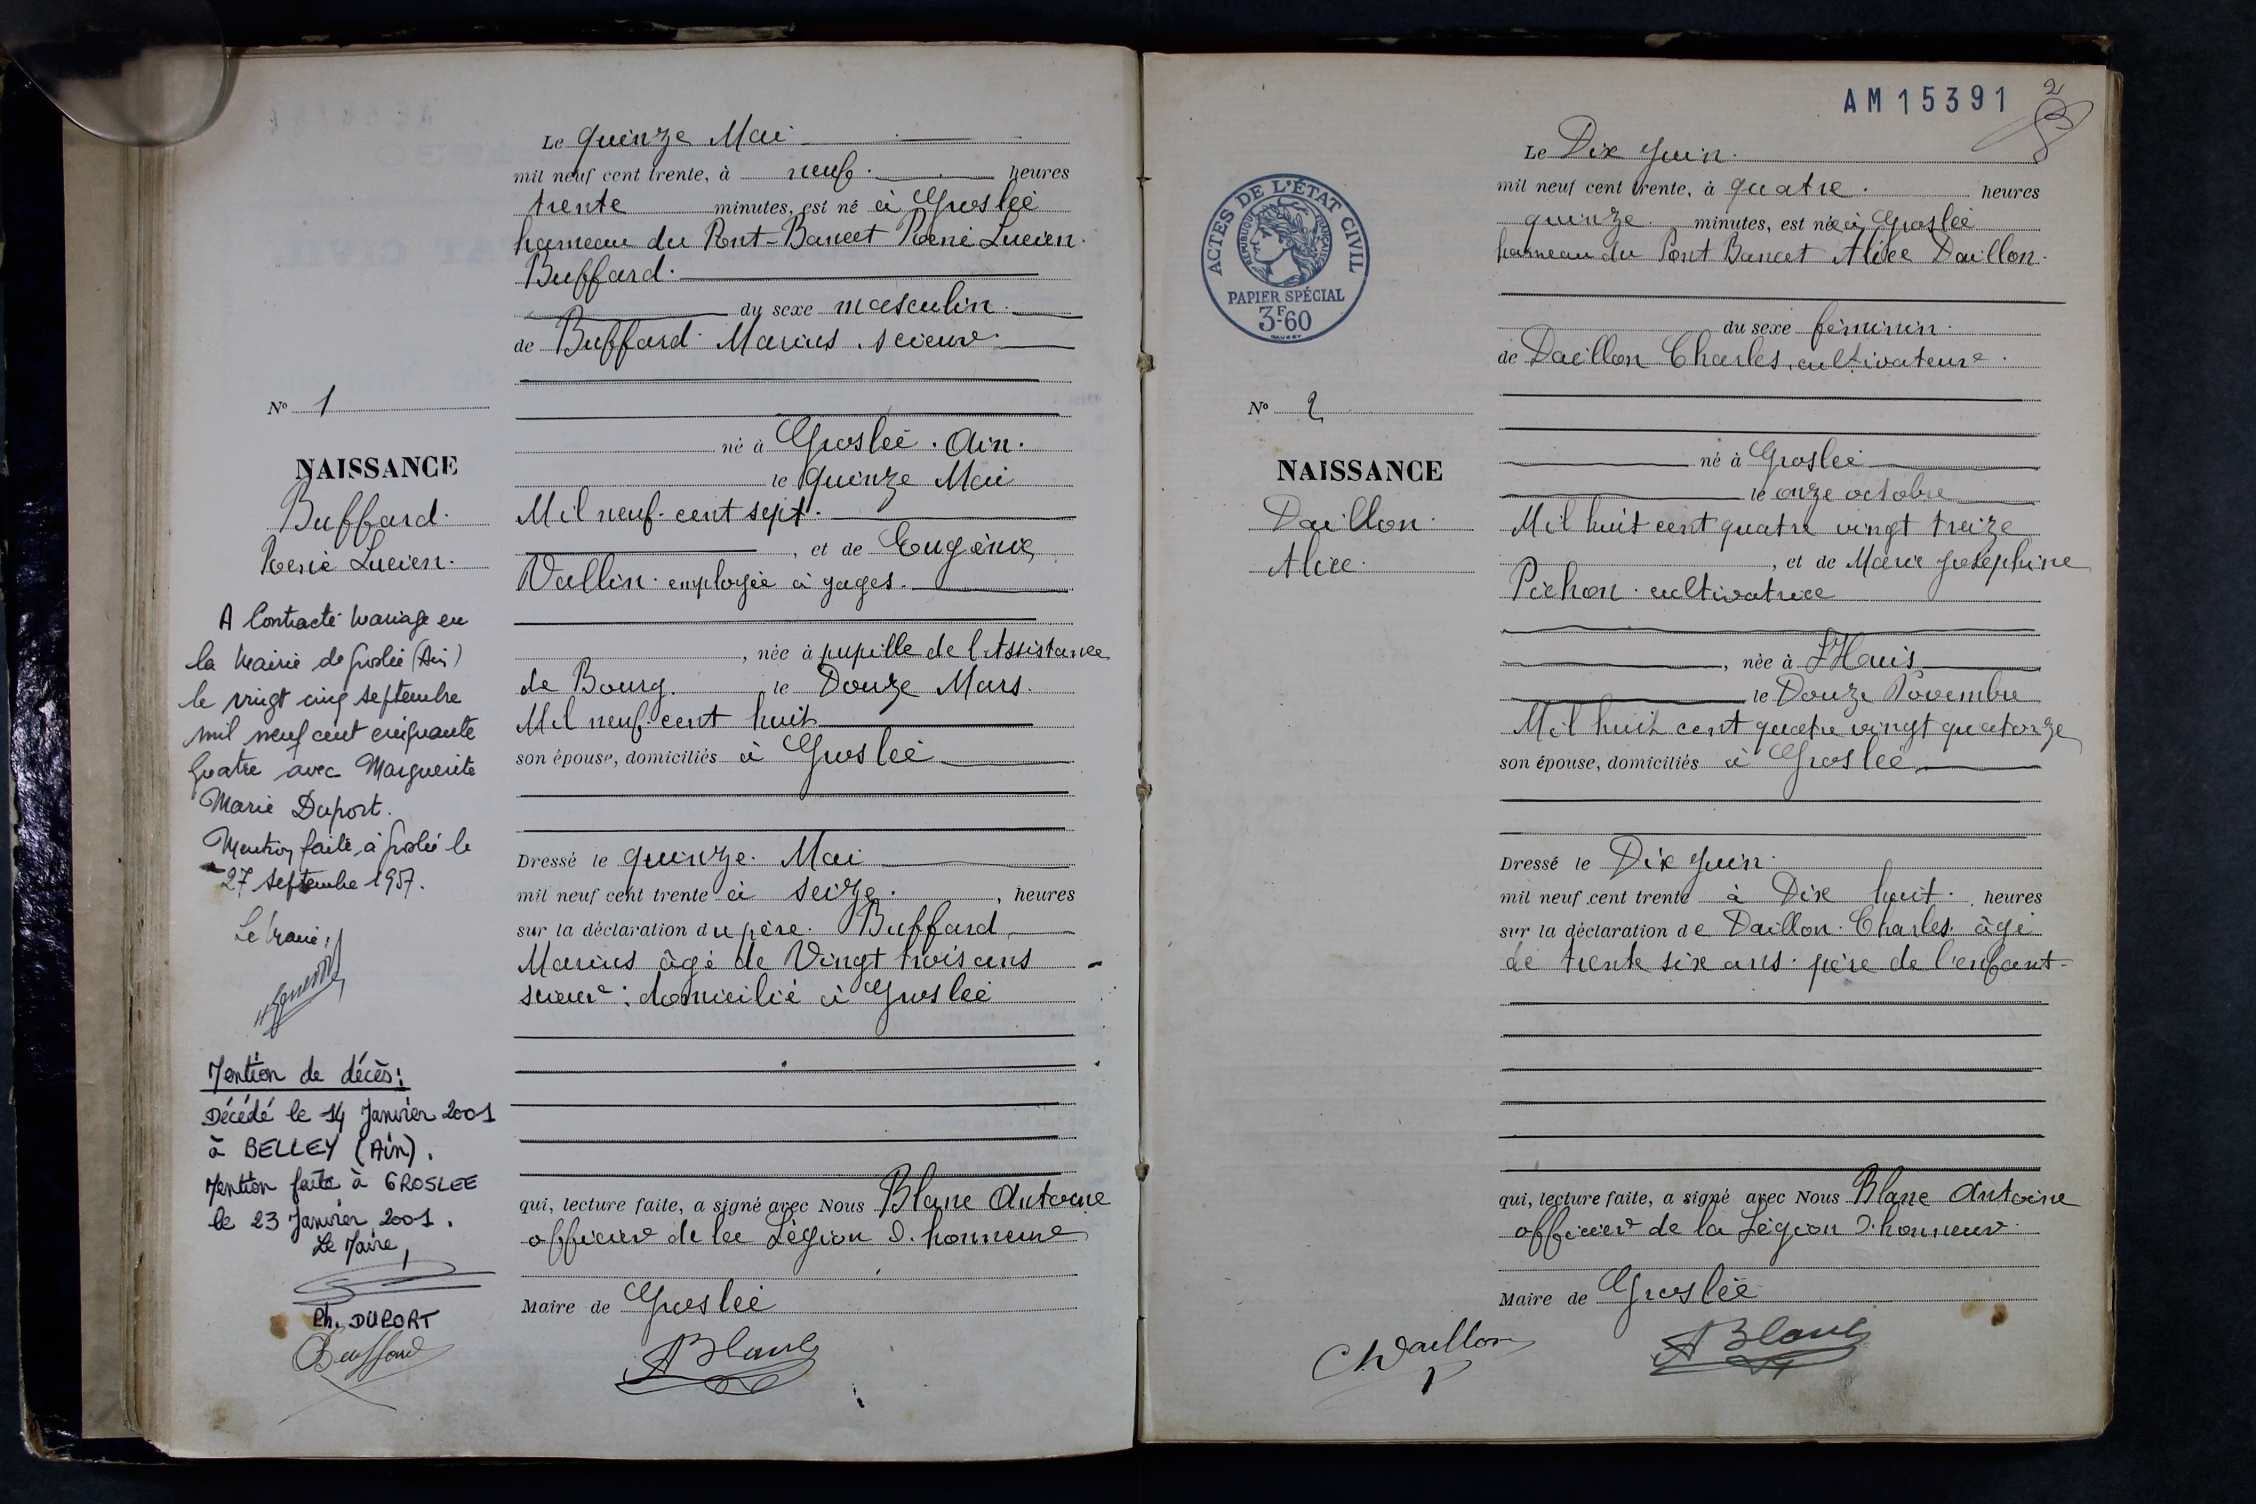 Le quinze Mai
mil neuf cent trente, à neuf heures
trente minutes, est né à Groslée
hameau du Pont-Bancet René Lucien
Buffard
du sexe masculin
de Buffard Marius scieur
né à Groslée. Ain.
le quinze Mai
Mil neuf cent sept
, et de Eugénie
Vallin employée à gages
, née à pupille de l'Assistance
de Bourg. le Douze Mars.
Mil neuf cent huit
son épouse, domiciliés à Groslée
Dressé le quinze Mai
mil neuf cent trente à seize, heures
sur la déclaration du père. Buffard
Marius âgé de Vingt trois ans
scieur: domicilié à Groslée
qui, lecture faite, a signé avec Nous Blanc Antoine
officier de la Légion d'honneur
Maire de Groslée
ABlanc
No 1
NAISSANCE
Buffard
René Lucien
A Contracté mariage en
la Mairie de Groslée (Ain)
le vingt cinq septembre
mil neuf cent cinquante
quatre avec Marguerite
Marie Duport.
Mention faite à Groslée le
27 septembre 1957.
Le Maire,
Mention de décès:
Décédé le 14 Janvier 2001
à BELLEY (Ain).
Mention faite à GROSLEE
le 23 Janvier 2001.
Le Maire,
Ph. DUPORT
Buffard
AM15391
2
Le Dix Juin
mil neuf cent trente, à quatre heures
quinze minutes, est née à Groslée
hameau du Pont Bancet Alice Daillon
du sexe féminin
de Daillon Charles, cultivateur
né à Groslée
le onze octobre
Mil huit cent quatre vingt treize
, et de Marie Joséphine
Pichon cultivatrice
, née à L'Huis
le Douze Novembre
Mil huit cent quatre vingt quatorze
son épouse, domiciliés à Groslée
Dressé le Dix Juin
mil neuf cent trente à Dix huit heures
sur la déclaration de Daillon Charles âgé
de trente six ans père de l'enfant
qui, lecture faite, a signé avec Nous Blanc Antoine
officier de la Légion d'honneur
Maire de Groslée
Ch Daillon
ABlanc
ACTES DE L'ÉTAT CIVIL
RÉPUBLIQUE FRANÇAISE
PAPIER SPÉCIAL
3F60
No 2
NAISSANCE
Daillon
Alice